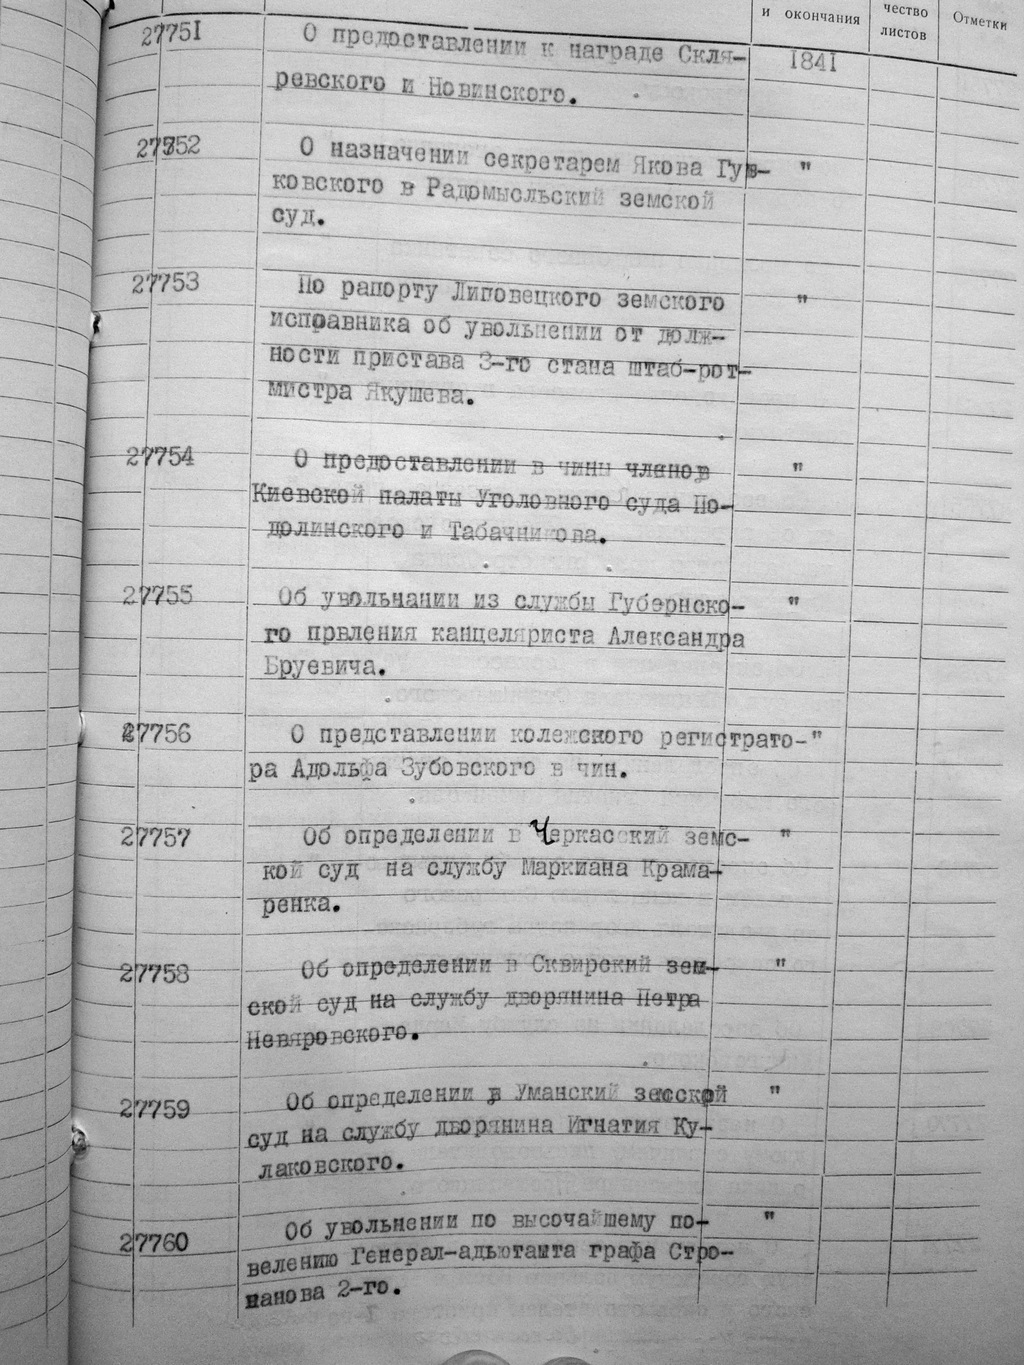 и окончания
чество листов
Отметки
27751 О предоставлении к награде Скля- 1841
ревского и Новинского.
27752 О назначении секретарем Якова Гув- "
ковского в Радомысльский земской
суд.
27753 По рапорту Липовецкого земского "
исправника об увольнении от долж-
ности пристава 3-го стана штаб-рот-
мистра Якушева.
27754 О предоставлении в чины членов "
Киевской палаты Уголовного суда По-
долинского и Табачникова.
27755 Об увольнании из службы Губернско- "
го првления канцеляриста Александра
Бруевича.
27756 О представлении колежского регистрато- "
ра Адольфа Зубовского в чин.
27757 Об определении в Черкасский земс- "
кой суд на службу Маркиана Крама-
ренка.
27758 Об определении в Сквирский зем- "
ской суд на службу дворянина Петра
Невяровского.
27759 Об определении в Уманский земской "
суд на службу дворянина Игнатия Ку-
лаковского.
27760 Об увольнении по высочайшему по- "
велению Генерал-адьютанта графа Стро-
нанова 2-го.